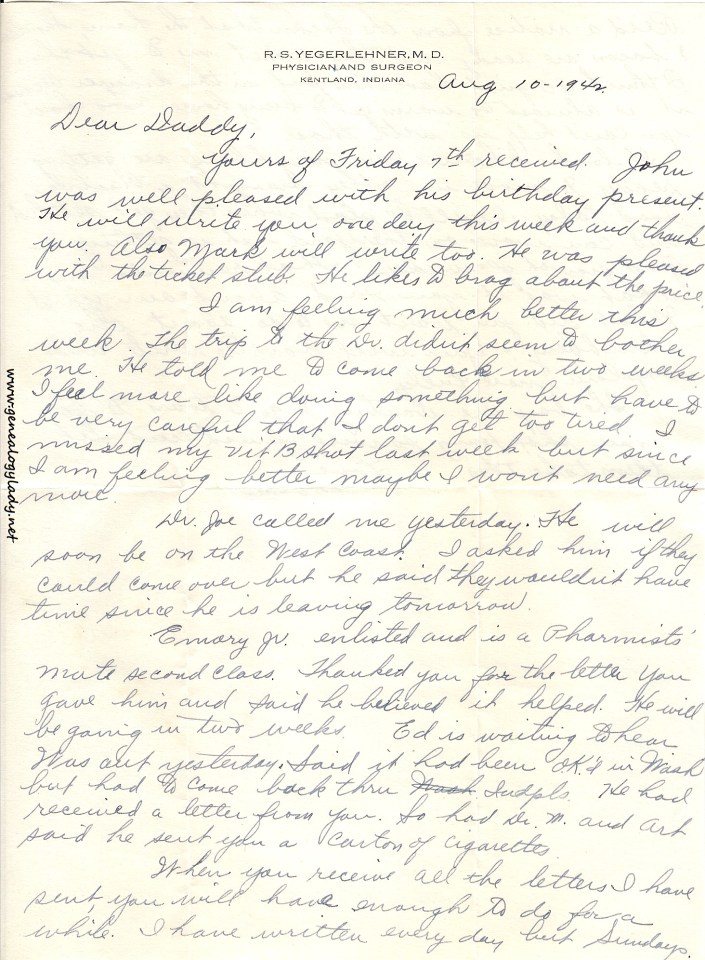 R. S. YEGERLEHNER, M. D.
PHYSICIAN AND SURGEON
KENTLAND, INDIANA
Aug 10-1942.
Dear Daddy,
Yours of Friday 7th received. John
was well pleased with his birthday present.
He will write you one day this week and thank
you. Also Mark will write too. He was pleased
with the ticket stub. He likes to brag about the price.
I am feeling much better this
week. The trip to the Dr. didn't seem to bother
me. He told me to come back in two weeks
I feel more like doing something but have to
be very careful that I don't get too tired. I
missed my Vit B shot last week but since
I am feeling better maybe I won't need any
more.
Dr. Joe called me yesterday. He will
soon be on the West Coast. I asked him if they
could come over but he said they wouldn't have
time since he is leaving tomorrow.
Emory Jr. enlisted and is a Pharmists'
mate second class. Thanked you for the letter you
gave him and said he believed it helped. He will
be going in two weeks. Ed is waiting to hear.
Was out yesterday. Said it had been O.K.'d in Wash
but had to come back thru Wash Indpls. He had
received a letter from you. So had Dr. M. and Art
said he sent you a carton of cigarettes
When you receive all the letters I have
sent, you will have enough to do for a
while. I have written every day but Sundays.
www.genealogylady.net